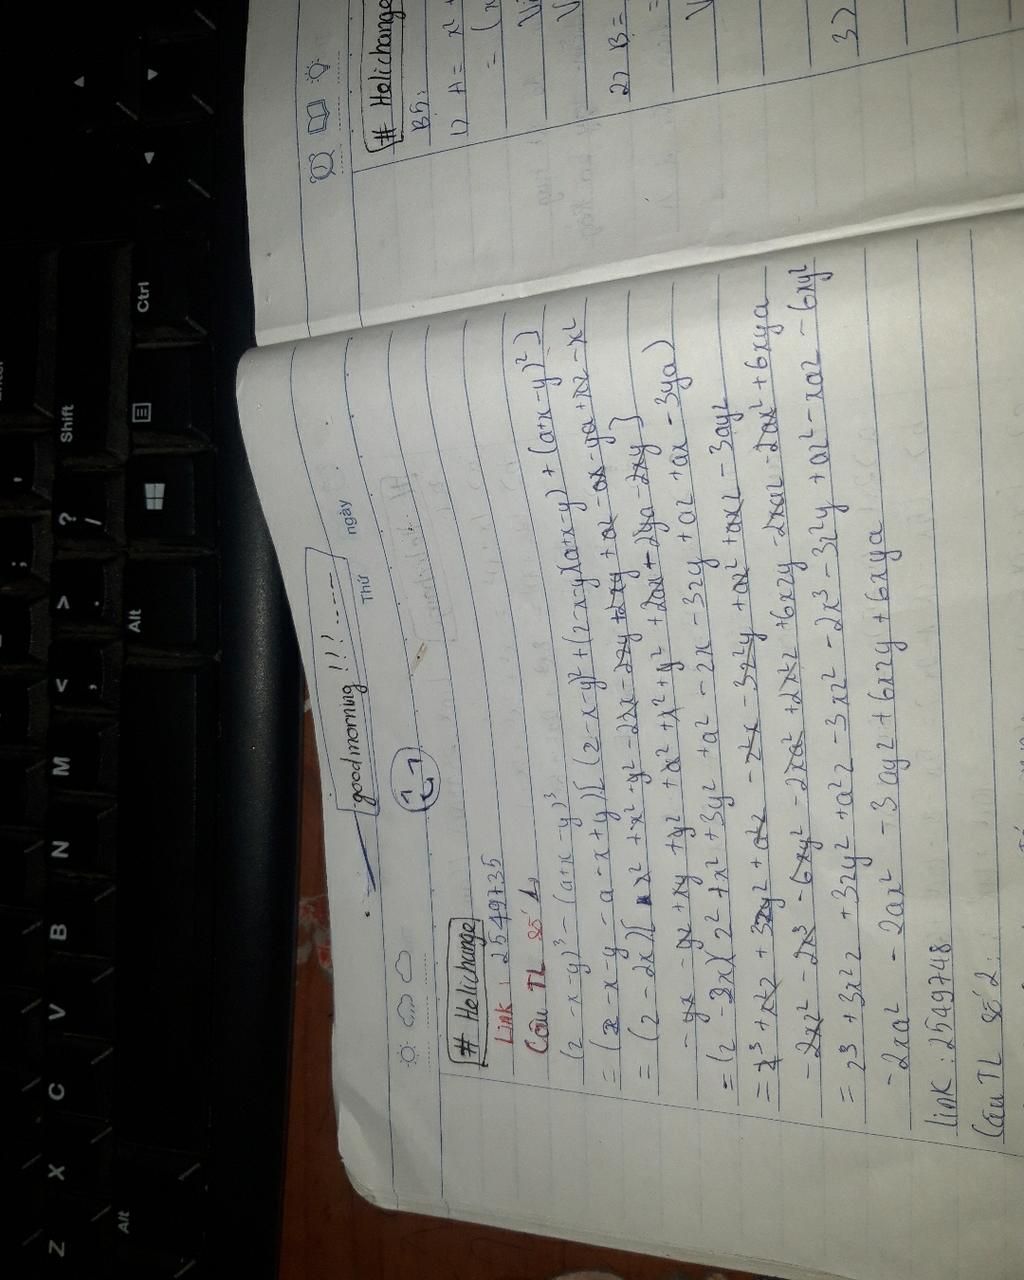 good morning !!! -----
Thứ
ngày
# Helichange
Link : 2549735
Câu TL số 1
(z - x - y)³ - (a+x - y)³
= (z - x - y - a - x + y)[(z - x - y)² + (z - x - y)(a+x - y) + (a+x - y)²]
= (z - 2x)[ x² + x² + y² - 2zx - 2zy + 2xy + az - ax - ya + xz - x²
- yx - yz + xy + y² + a² + x² + y² + 2ax - 2ya - 2xy]
= (z - 2x)(z² + x² + 3y² + a² - zx - 3zy + az + ax - 3ya)
= z³ + x²z + 3zy² + a²z - z²x - 3z²y + az² + axz - 3ayz
- 2xz² - 2x³ - 6xy² - 2xa² + 2x²z + 6xzy - 2xaz - 2ax² + 6xya
= z³ + 3x²z + 3zy² + a²z - 3xz² - 2x³ - 3z²y + az² - xaz - 6xy²
- 2xa² - 2ax² - 3ayz + 6xzy + 6xya
link : 2549748
Câu TL số 2:
# Helichange
B5:
1) A = x² +
= (x
2) B =
=
3)
Shift
Ctrl
Alt
Alt
Z
X
C
V
B
N
M
<
,
>
.
?
/
;